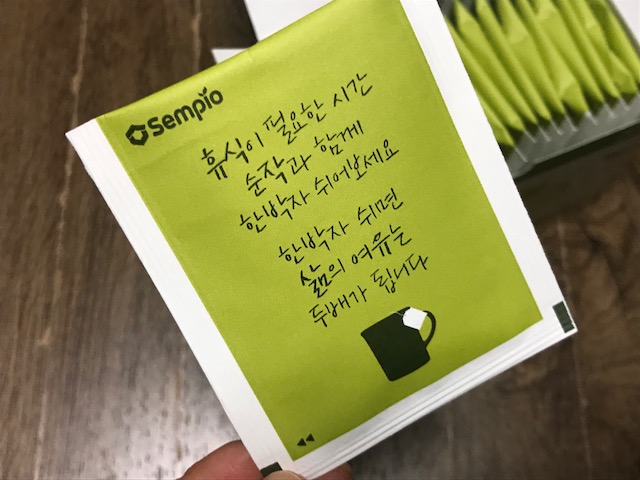 sempio
휴식이 필요한 시간
순작과 함께
한박자 쉬어보세요
한박자 쉬면
삶의 여유는
두배가 됩니다